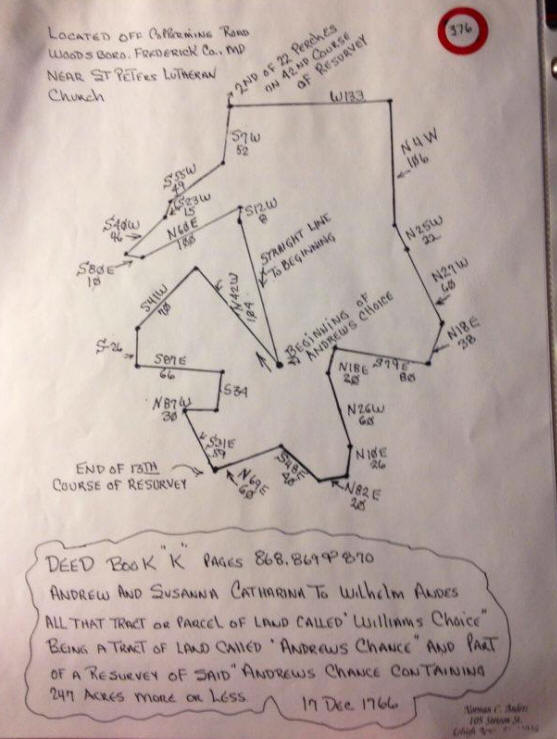 LOCATED OFF COPPERMINE ROAD
WOODSBORO, FREDERICK CO., MD
NEAR ST PETERS LUTHERAN
CHURCH
376
2ND OF 22 PERCHES
ON 42ND COURSE
OF RESURVEY
W133
S7W
52
N4W
106
S55W
49
S23W
15
S40W
46
N60E
100
S12W
8
STRAIGHT LINE
TO BEGINNING
N25W
22
S80E
10
N27W
60
S41W
70
N42W
104
BEGINNING OF
ANDREWS CHOICE
N18E
38
S-26
S87E
66
N18E
20
S79E
80
S34
N87W
30
N26W
60
S31E
59
END OF 13TH
COURSE OF RESURVEY
N69E
60
S48E
40
N10E
26
N82E
20
DEED BOOK "K" PAGES 868.869 & 870
ANDREW AND SUSANNA CATHARINA TO WILHELM ANDES
ALL THAT TRACT OR PARCEL OF LAND CALLED "WILLIAMS CHOICE"
BEING A TRACT OF LAND CALLED "ANDREWS CHANCE" AND PART
OF A RESURVEY OF SAID "ANDREWS CHANCE CONTAINING
247 ACRES MORE OR LESS. 17 DEC 1766
Norman C. Anders
105
Lehigh